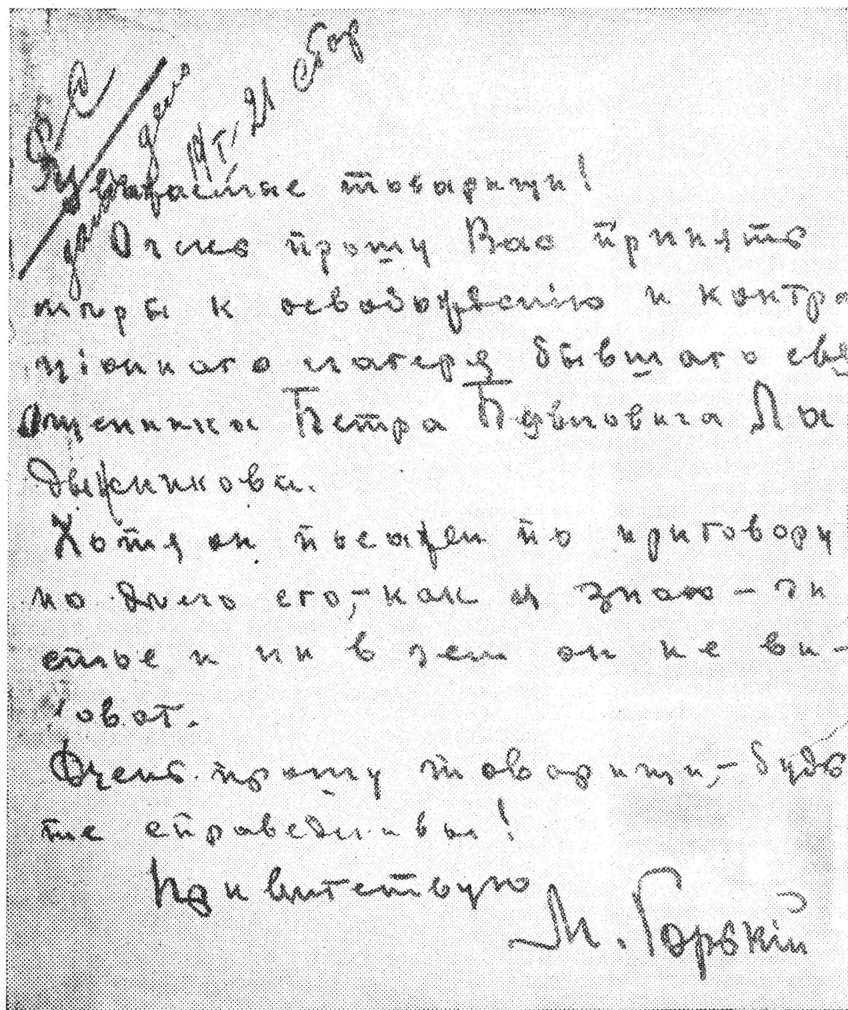 19/I-21
Уважаемые товарищи!
Очень прошу Вас принять
меры к освобожденію и контра
ціоннаго лагеря бывшаго свя
щенника Петра Павловича Ла
дыжникова.
Хотя он посажен по приговору
но дело его,- как я знаю - чи
стое и ни в чем он не ви-
новат.
Очень прошу товарищи,- будь
те справедливы!
Приветствую
М. Горькій